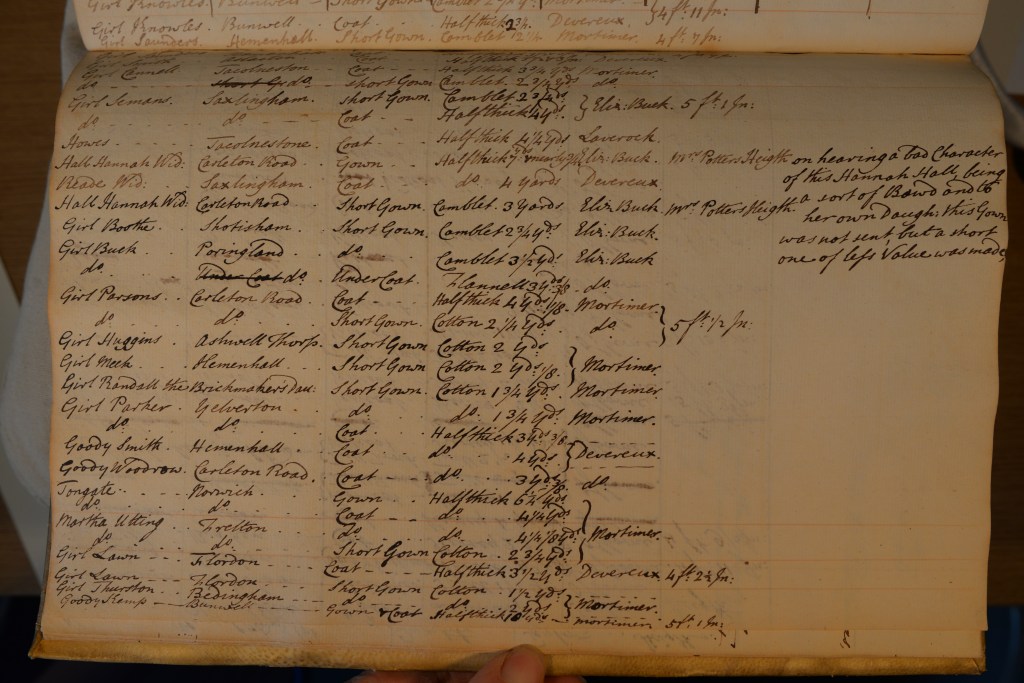 Girl Knowles Bunwell Short Gown Camblet Mortimer } 4 ft: 11 In:
Girl Knowles. Bunwell Coat Halfthick 2 3/4. Devereux
Girl Saunders. Hemenhall. Short Gown. Camblet Mortimer. 4 ft: 7 In:
Girl Cannell Tacolneston Coat Halfthick 3 1/4 Yds Mortimer.
do. do. Short Gown Camblet 2 Yds do.
Girl Semans. Saxlingham. Short Gown. Camblet 2 3/4 ds } Eliz: Buck. 5 ft: 1 In:
do. do. Coat Halfthick 4 Yds.
Howes Tacolnestone. Coat Halfthick 4 1/4 Yds Laverock.
Hall Hannah Wid: Carleton Road. Gown Halfthick 7 Yds nearly Eliz: Buck. Mrs Potters Heigth on hearing a bad Character
of this Hannah Hall, being
Reade Wid: Saxlingham. Coat do. 4 Yards Devereux.
a sort of Bawd and to
Hall Hannah Wid: Carleton Road Short Gown. Camblet. 3 Yards Eliz: Buck. Mrs Potters Heigth.
her own Daugh: this Gown
Girl Boothe Shotisham. Short Gown. Camblet 2 3/4 Yds. Eliz: Buck.
was not sent, but a short
one of less Value was made,
Girl Buck Poringland do. Camblet 3 1/2 Yds. Eliz: Buck
do. Under Coat do. Under Coat. Flannell 3 Yds 3/8 do.
Girl Parsons. Carleton Road. Coat Halfthick 4 Yds 1/8 Mortimer } 5 ft: 1/2 In:
do. do. Short Gown. Cotton 2 1/4 Yds. do.
Girl Huggins. Ashwell Thorp. Short Gown Cotton 2 Yds
Girl Meek Hemenhall. Short Gown Cotton 2 Yds. 1/8. } Mortimer.
Girl Randall the Brickmakers Dau: Short Gown. Cotton 1 3/4 Yds. Mortimer
Girl Parker. Yelverton. do. do. 1 3/4 Yds. Mortimer.
do. do. Coat Halfthick 3 Yds 3/8
Goody Smith. Hemenhall. Coat do. 4 Yds } Devereux.
Goody Woodrow. Carleton Road. Coat do. 3 Yds do.
Tongate. Norwich. Gown Halfthick 6 1/4 Yds
do. do. Coat do. 4 1/4 Yds } Mortimer
Martha Utting Fretton do. do. 4 1/4 Yds
do. do. Short Gown Cotton. 2 3/4 Yds
Girl Lawn Flordon. Coat Halfthick 3 1/2 Yds Devereux 4 ft: 2 1/2 In:
Girl Lawn Flordon Short Gown Cotton 1 1/2 Yds
Girl Thurston. Bedingham do. do. 2 Yds } Mortimer.
Goody Kemp Bunwell Gown & Coat Halfthick 10 Yds mortimer 5 ft: 1 In: